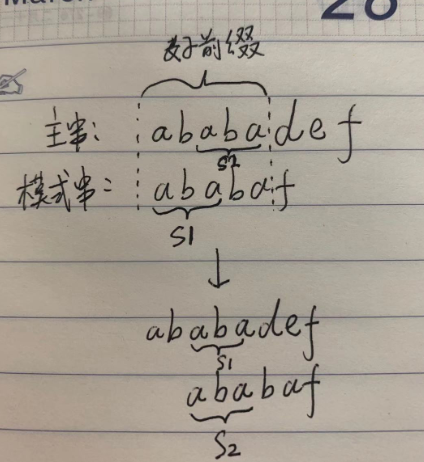 28
好前缀
主串: ababadef
S2
模式串: ababaf
S1
ababadef
S1
ababaf
S2